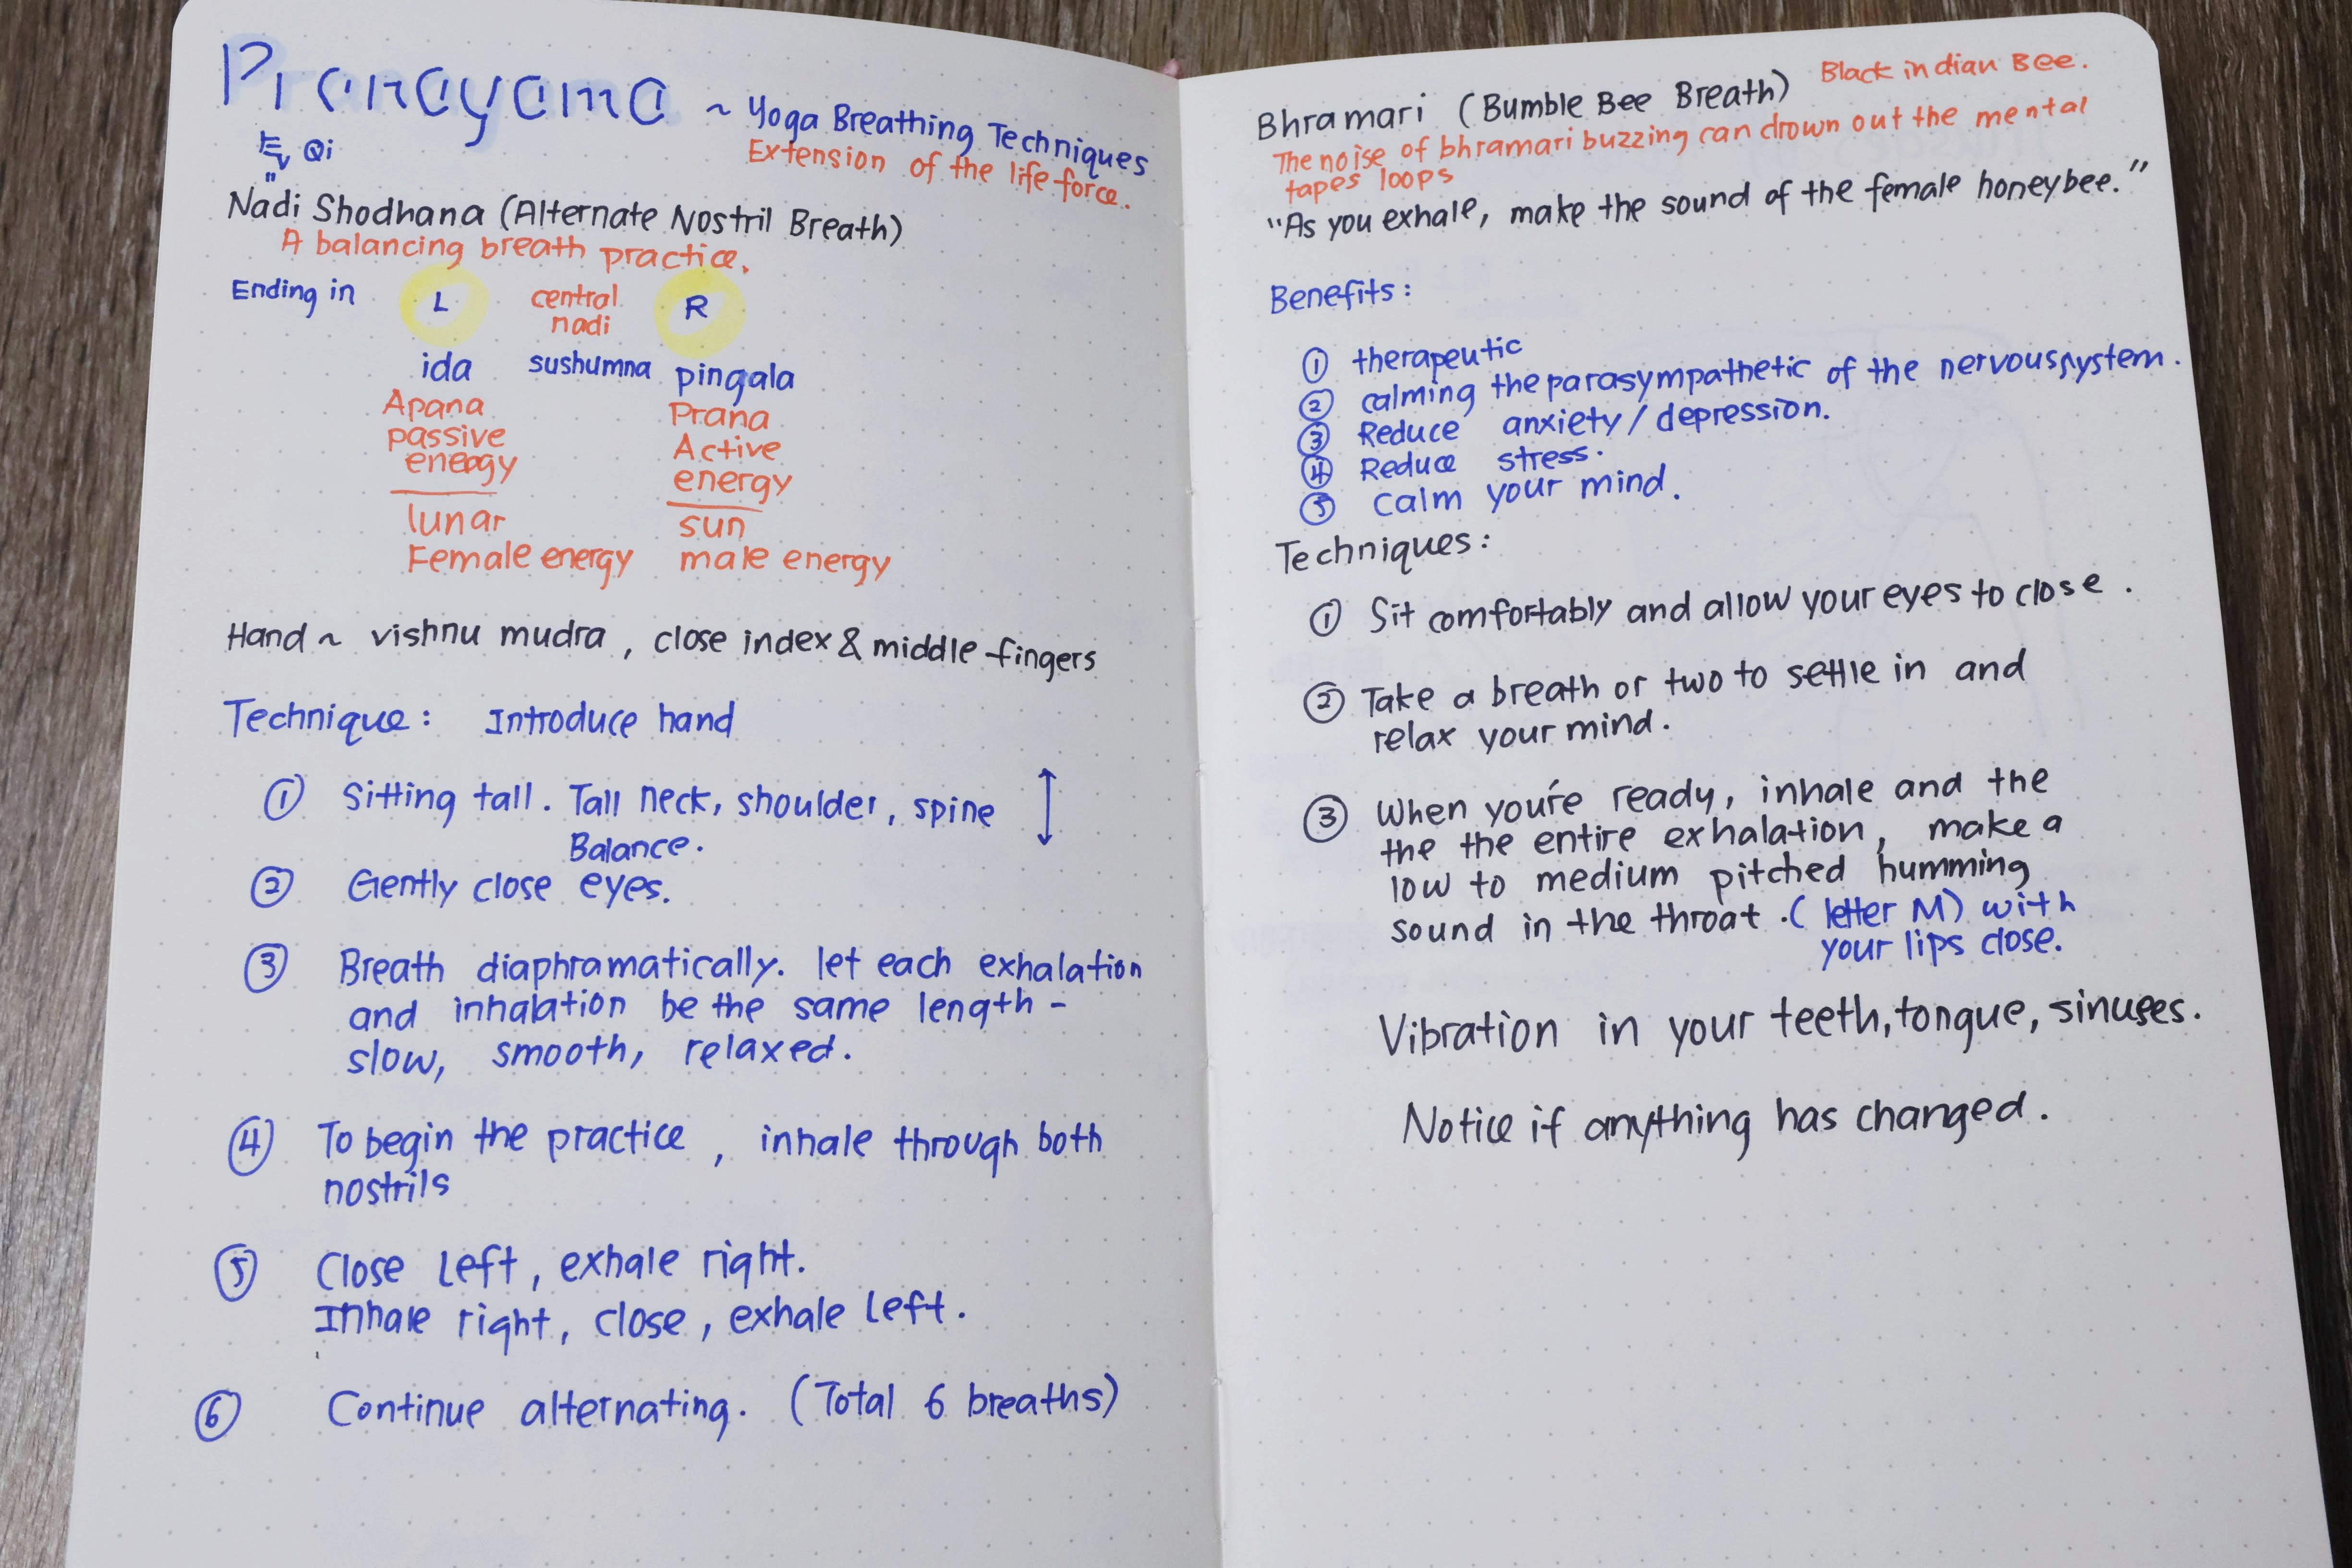 Pranayama ~ Yoga Breathing Techniques
Extension of the life force.
Qi
Nadi Shodhana (Alternate Nostril Breath)
A balancing breath practice.
Ending in L central R
nadi
ida sushumna pingala
Apana Prana
passive Active
energy energy
lunar sun
Female energy male energy
Hand ~ vishnu mudra, close index & middle fingers
Technique: Introduce hand
① Sitting tall. Tall neck, shoulder, spine
Balance.
② Gently close eyes.
③ Breath diaphramatically. let each exhalation
and inhalation be the same length -
slow, smooth, relaxed.
④ To begin the practice, inhale through both
nostrils
⑤ Close Left, exhale right.
Inhale right, close, exhale Left.
⑥ Continue alternating. (Total 6 breaths)
Bhramari (Bumble Bee Breath) Black indian Bee.
The noise of bhramari buzzing can drown out the mental
tapes loops
"As you exhale, make the sound of the female honeybee."
Benefits:
① therapeutic
② calming the parasympathetic of the nervous system.
③ Reduce anxiety / depression.
④ Reduce stress.
⑤ Calm your mind.
Techniques:
① Sit comfortably and allow your eyes to close.
② Take a breath or two to settle in and
relax your mind.
③ When you're ready, inhale and the
the the entire exhalation, make a
low to medium pitched humming
sound in the throat. (letter M) with
your lips close.
Vibration in your teeth, tongue, sinuses.
Notice if anything has changed.